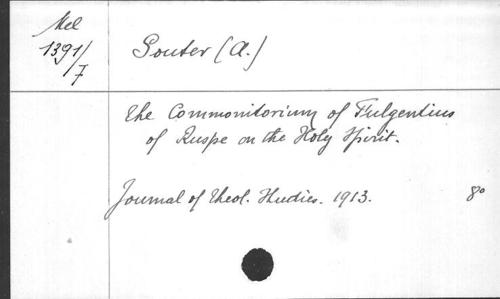 Mel
1391/7
Souter (A.)
The Commonitorium of Fulgentius
of Ruspe on the Holy Spirit.
Journal of Theol. Studies. 1913. 8°